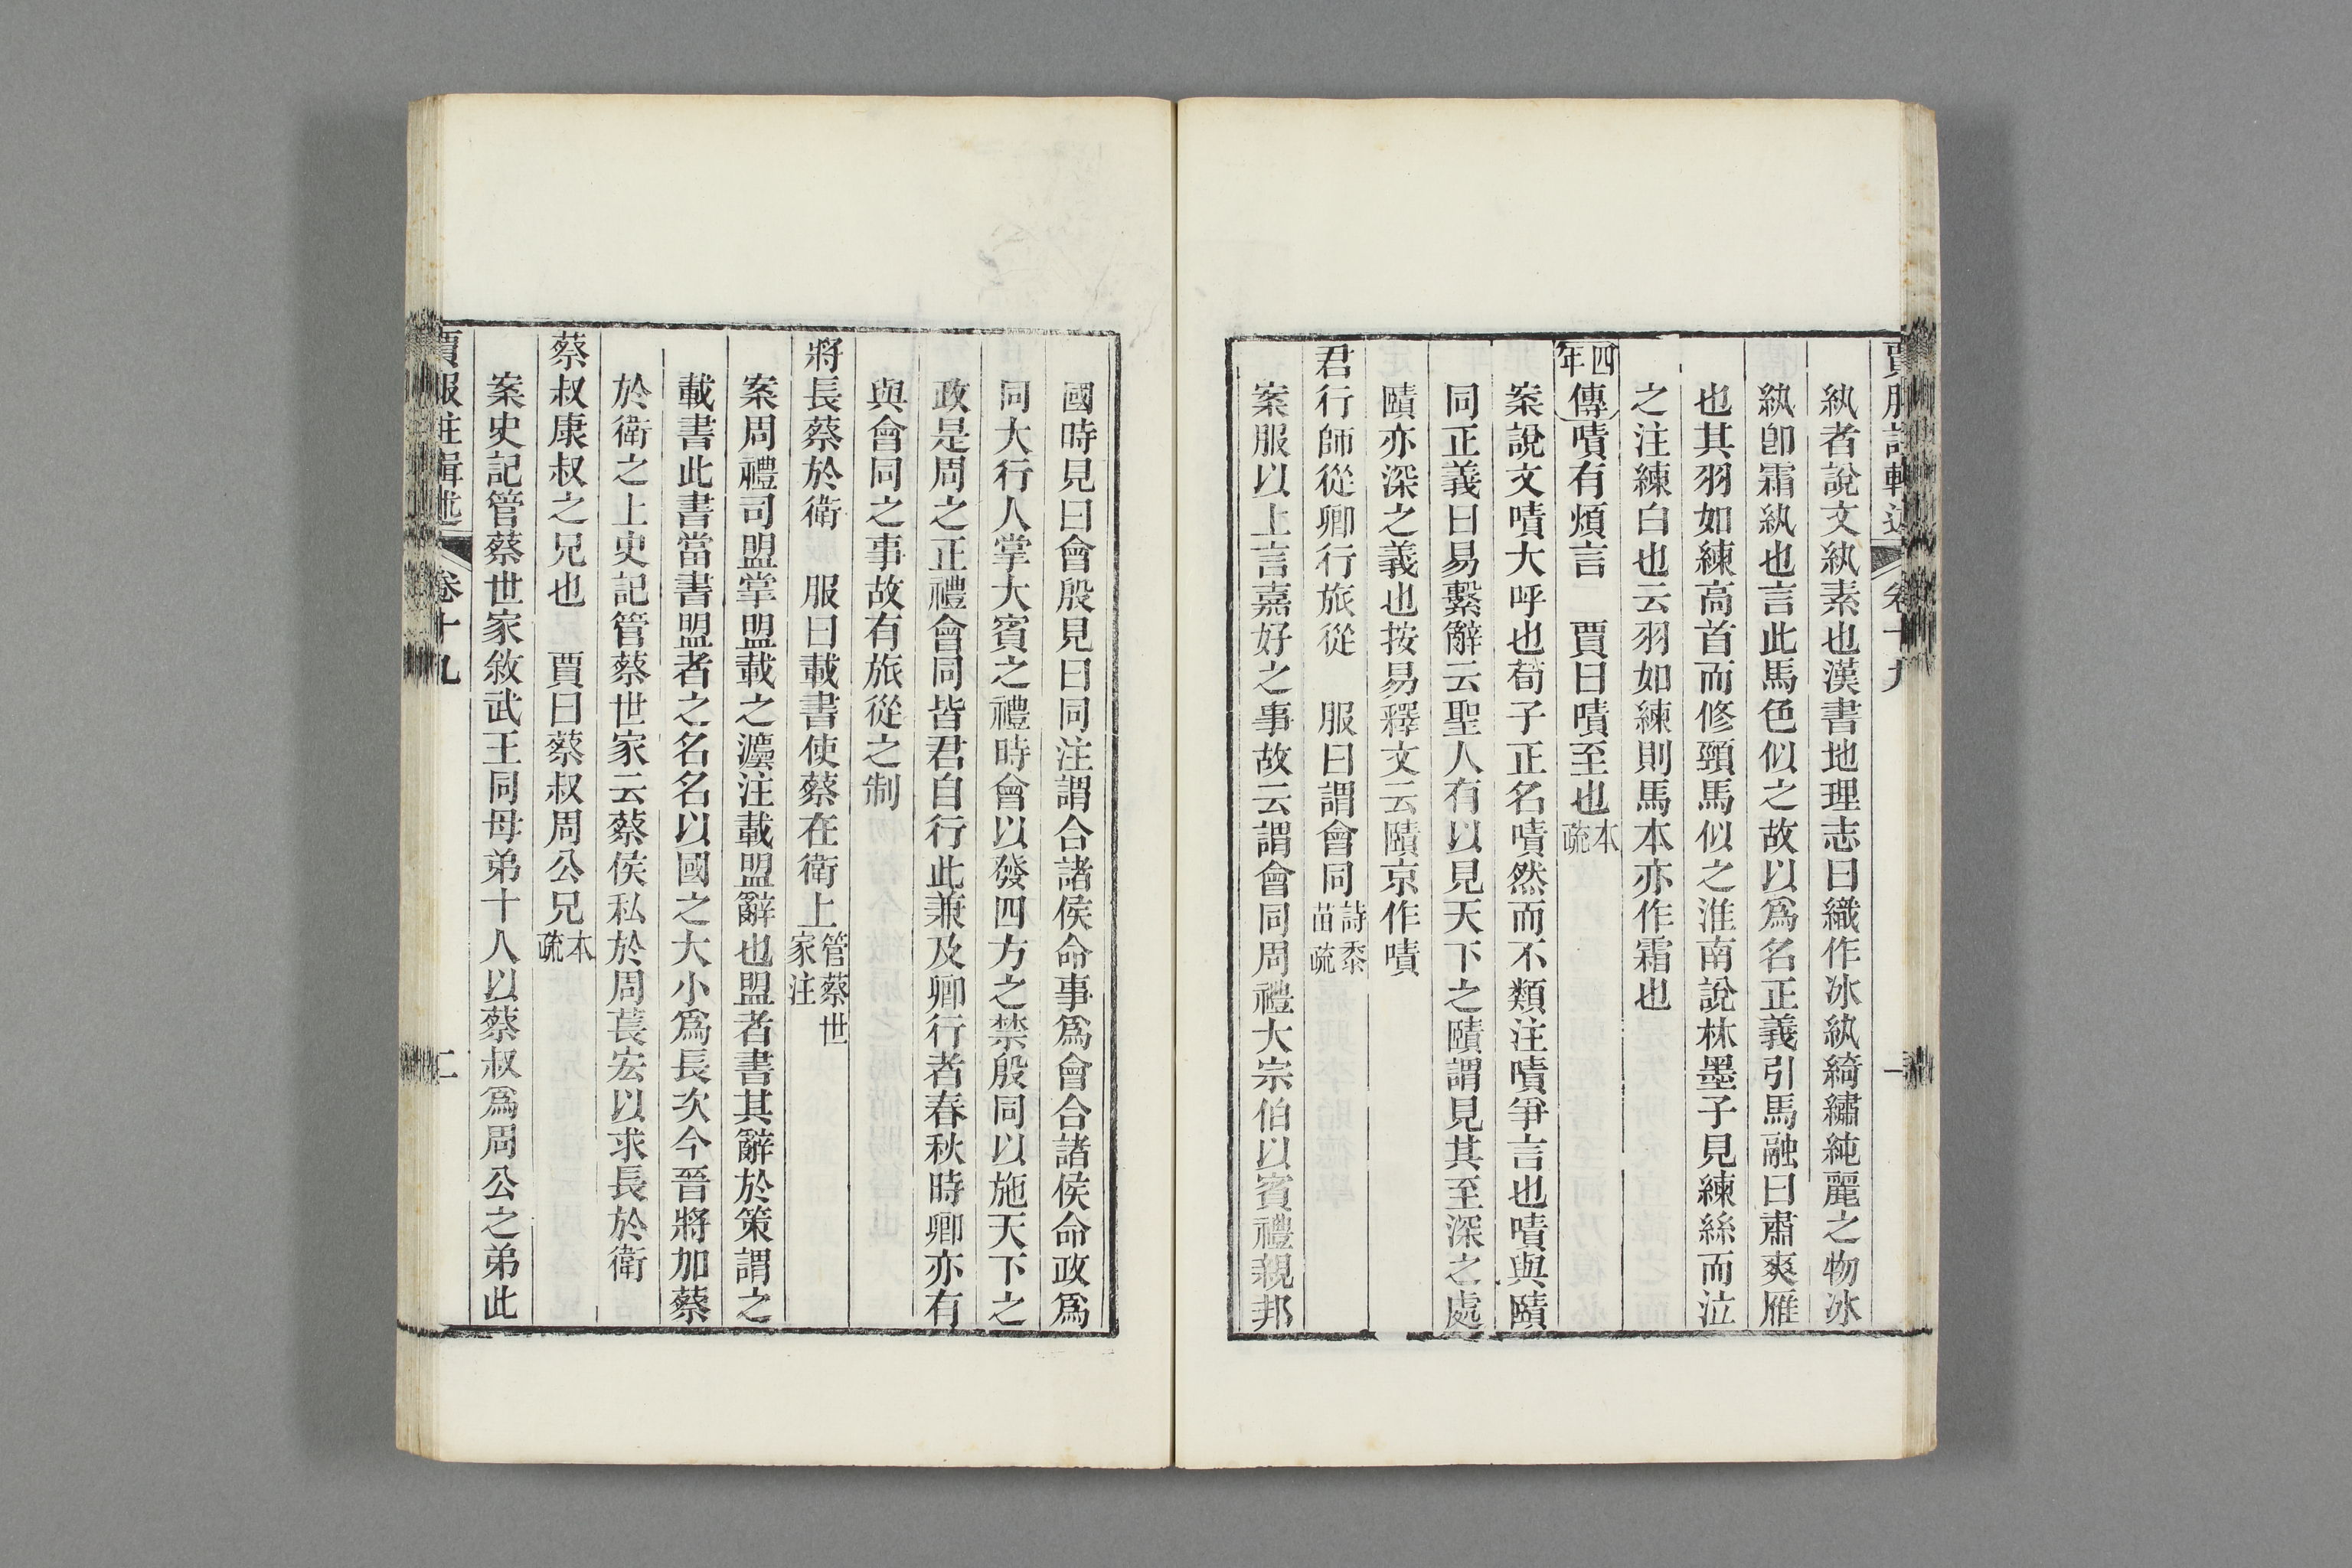 賈服註輯述 卷十九 一
紈者說文紈素也漢書地理志曰織作冰紈綺繡純麗之物冰
紈卽霜紈也言此馬色似之故以爲名正義引馬融曰肅爽雁
也其羽如練高首而修頸馬似之淮南說林墨子見練絲而泣
之注練白也云羽如練則馬本亦作霜也
四年傳嘖有煩言 賈曰嘖至也本疏
案說文嘖大呼也荀子正名嘖然而不類注嘖爭言也嘖與賾
同正義曰易繫辭云聖人有以見天下之賾謂見其至深之處
賾亦深之義也按易釋文云賾京作嘖
君行師從卿行旅從 服曰謂會同詩黍苗疏
案服以上言嘉好之事故云謂會同周禮大宗伯以賓禮親邦
國時見曰會殷見曰同注謂合諸侯命事爲會合諸侯命政爲
同大行人掌大賓之禮時會以發四方之禁殷同以施天下之
政是周之正禮會同皆君自行此兼及卿行者春秋時卿亦有
與會同之事故有旅從之制
將長蔡於衛 服曰載書使蔡在衛上管蔡世家注
案周禮司盟掌盟載之灋注載盟辭也盟者書其辭於策謂之
載書此書當書盟者之名名以國之大小爲長次今晉將加蔡
於衛之上史記管蔡世家云蔡侯私於周萇宏以求長於衛
蔡叔康叔之兄也 賈曰蔡叔周公兄本疏
案史記管蔡世家敘武王同母弟十人以蔡叔爲周公之弟此
賈服註輯述 卷十九 二